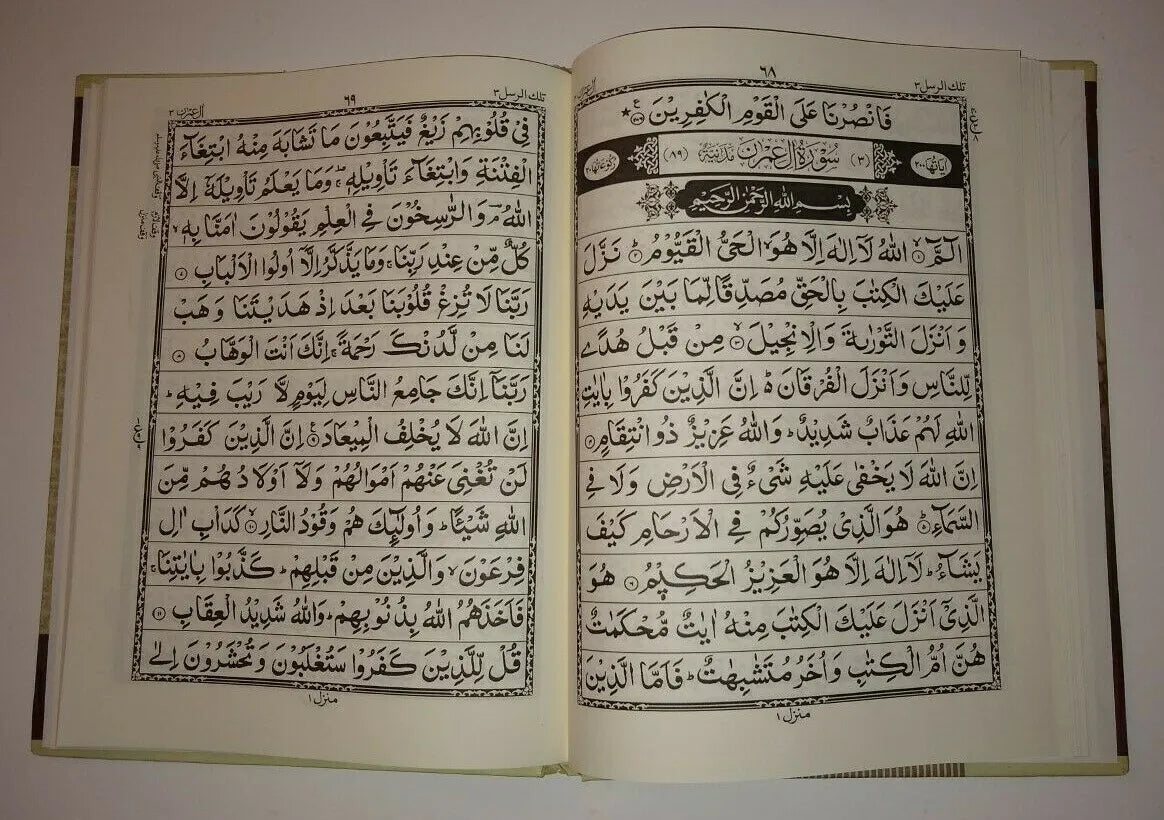 ٦٨
تلك الرسل ٣
فَانْصُرْنَا عَلَى الْقَوْمِ الْكٰفِرِيْنَ ۝٢٨٦
اٰيَاتُهَا ٢٠٠ (٣) سُوْرَةُ اٰلِ عِمْرٰنَ مَدَنِيَّةٌ (٨٩) رُكُوْعَاتُهَا ٢٠
بِسْمِ اللّٰهِ الرَّحْمٰنِ الرَّحِيْمِ
الٓمّٓ ۝١ اللّٰهُ لَاۤ اِلٰهَ اِلَّا هُوَ الْحَيُّ الْقَيُّوْمُ ۝٢ نَزَّلَ
عَلَيْكَ الْكِتٰبَ بِالْحَقِّ مُصَدِّقًا لِّمَا بَيْنَ يَدَيْهِ
وَاَنْزَلَ التَّوْرٰىةَ وَالْاِنْجِيْلَ ۝٣ مِنْ قَبْلُ هُدًى
لِّلنَّاسِ وَاَنْزَلَ الْفُرْقَانَ ۬ؕ اِنَّ الَّذِيْنَ كَفَرُوْا بِاٰيٰتِ
اللّٰهِ لَهُمْ عَذَابٌ شَدِيْدٌ ؕ وَاللّٰهُ عَزِيْزٌ ذُو انْتِقَامٍ ۝٤
اِنَّ اللّٰهَ لَا يَخْفٰى عَلَيْهِ شَيْءٌ فِي الْاَرْضِ وَلَا فِي
السَّمَآءِ ۝٥ هُوَ الَّذِيْ يُصَوِّرُكُمْ فِي الْاَرْحَامِ كَيْفَ
يَشَآءُ ؕ لَاۤ اِلٰهَ اِلَّا هُوَ الْعَزِيْزُ الْحَكِيْمُ ۝٦ هُوَ
الَّذِيْۤ اَنْزَلَ عَلَيْكَ الْكِتٰبَ مِنْهُ اٰيٰتٌ مُّحْكَمٰتٌ
هُنَّ اُمُّ الْكِتٰبِ وَاُخَرُ مُتَشٰبِهٰتٌ ؕ فَاَمَّا الَّذِيْنَ
منزل ١
٦٩
تلك الرسل ٣
اٰل عمرٰن ٣
فِيْ قُلُوْبِهِمْ زَيْغٌ فَيَتَّبِعُوْنَ مَا تَشَابَهَ مِنْهُ ابْتِغَآءَ
الْفِتْنَةِ وَابْتِغَآءَ تَاْوِيْلِهٖ ؔ وَمَا يَعْلَمُ تَاْوِيْلَهٗۤ اِلَّا
اللّٰهُ ۘ وَالرّٰسِخُوْنَ فِي الْعِلْمِ يَقُوْلُوْنَ اٰمَنَّا بِهٖ ۙ
كُلٌّ مِّنْ عِنْدِ رَبِّنَا ۚ وَمَا يَذَّكَّرُ اِلَّاۤ اُولُوا الْاَلْبَابِ ۝٧
رَبَّنَا لَا تُزِغْ قُلُوْبَنَا بَعْدَ اِذْ هَدَيْتَنَا وَهَبْ
لَنَا مِنْ لَّدُنْكَ رَحْمَةً ۚ اِنَّكَ اَنْتَ الْوَهَّابُ ۝٨
رَبَّنَاۤ اِنَّكَ جَامِعُ النَّاسِ لِيَوْمٍ لَّا رَيْبَ فِيْهِ ؕ
اِنَّ اللّٰهَ لَا يُخْلِفُ الْمِيْعَادَ ۝٩ اِنَّ الَّذِيْنَ كَفَرُوْا
لَنْ تُغْنِيَ عَنْهُمْ اَمْوَالُهُمْ وَلَاۤ اَوْلَادُهُمْ مِّنَ
اللّٰهِ شَيْـًٔا ؕ وَاُولٰٓئِكَ هُمْ وَقُوْدُ النَّارِ ۝١٠ كَدَاْبِ اٰلِ
فِرْعَوْنَ ۙ وَالَّذِيْنَ مِنْ قَبْلِهِمْ ؕ كَذَّبُوْا بِاٰيٰتِنَا ۚ
فَاَخَذَهُمُ اللّٰهُ بِذُنُوْبِهِمْ ؕ وَاللّٰهُ شَدِيْدُ الْعِقَابِ ۝١١
قُلْ لِّلَّذِيْنَ كَفَرُوْا سَتُغْلَبُوْنَ وَتُحْشَرُوْنَ اِلٰى
منزل ١